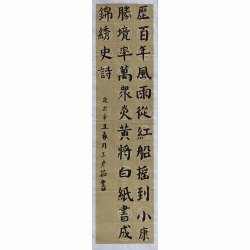 歷百年風雨從紅船搖到小康
勝境率萬衆炎黃將白紙書成
錦綉史詩
春月王書